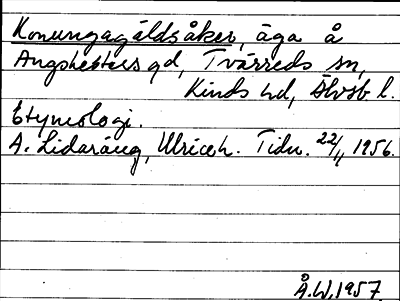 Konungagäldsåker, äga å
Angshesters gd, Tvärreds sn,
Kinds hd, Älvsb l.
Etymologi.
A. Lidaräng, Ulriceh. Tidn. 22/11 1956.
Å.W. 1957